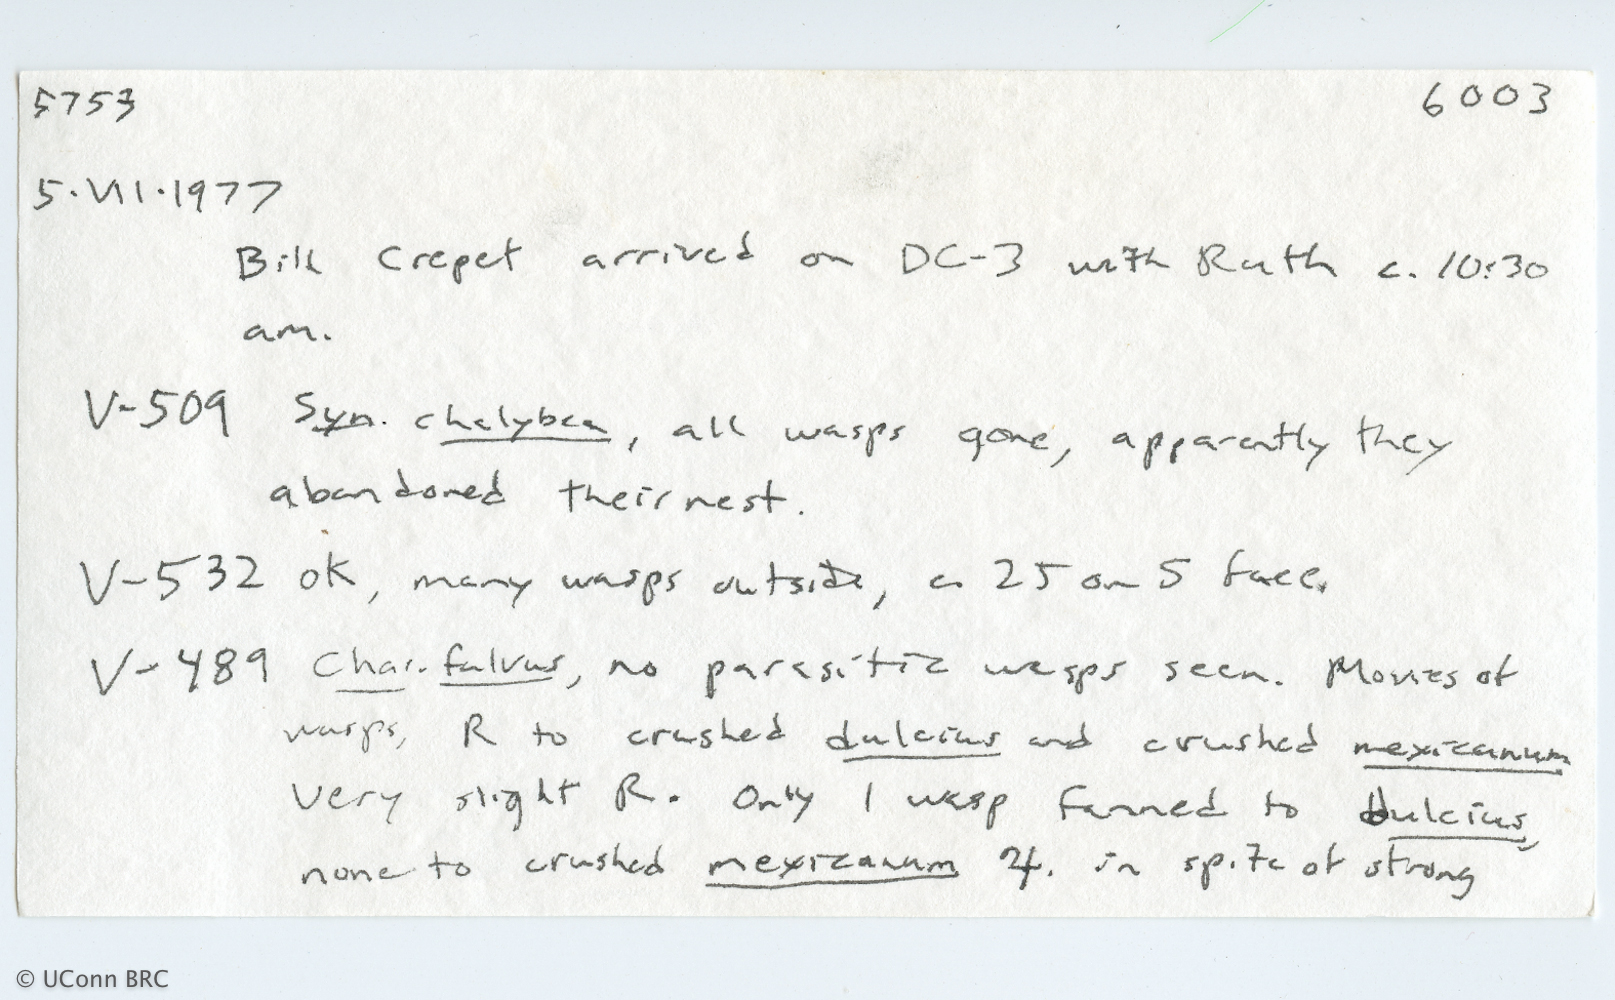 5753 6003
5.VII.1977
Bill Crepet arrived on DC-3 with Ruth c. 10:30
am.
V-509 Syn. chalybea, all wasps gone, apparently they
abandoned their nest.
V-532 ok, many wasps outside, c. 25 on S face.
V-489 Char. fulvus, no parasitic wasps seen. Movies of
wasps, R to crushed dulcius and crushed mexicanum
very slight R. Only 1 wasp fanned to dulcius,
none to crushed mexicanum in spite of strong
© UConn BRC